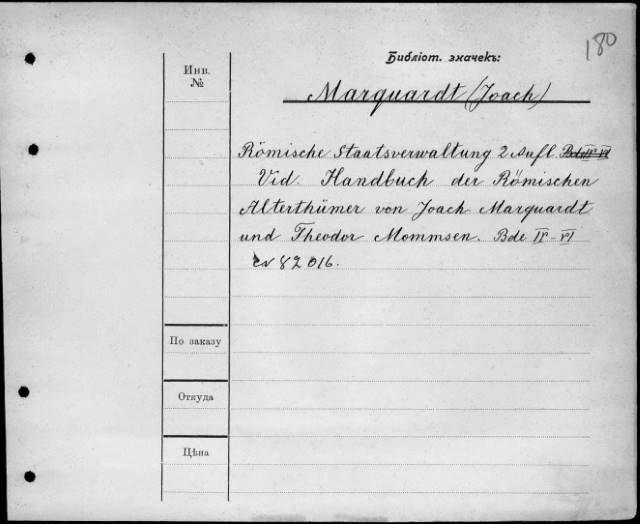 180
Библіот. значекъ:
Инв.
№
Marquardt (Joach)
Römische Staatsverwaltung 2 Aufl.
Vid. Handbuch der Römischen
Alterthümer von Joach Marquardt
und Theodor Mommsen. Bde IV-VI
82016.
По заказу
Откуда
Цѣна